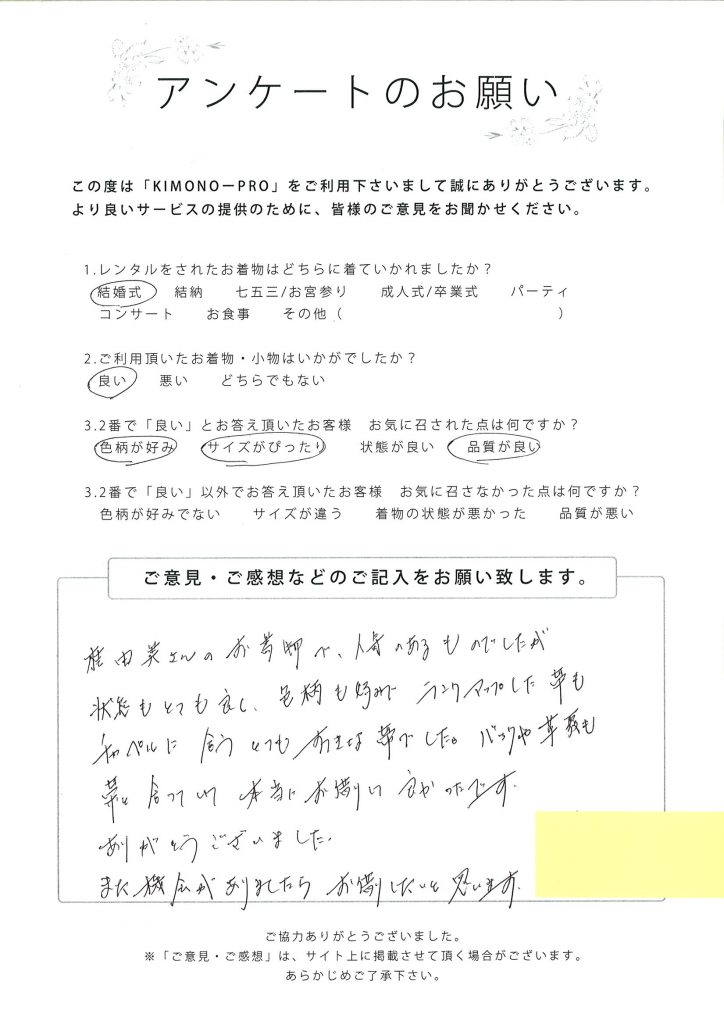 アンケートのお願い
この度は「KIMONO－PRO」をご利用下さいまして誠にありがとうございます。
より良いサービスの提供のために、皆様のご意見をお聞かせください。
1.レンタルをされたお着物はどちらに着ていかれましたか？
結婚式　結納　七五三/お宮参り　成人式/卒業式　パーティ
コンサート　お食事　その他（　　　　　　　　　　　　）
2.ご利用頂いたお着物・小物はいかがでしたか？
良い　悪い　どちらでもない
3.2番で「良い」とお答え頂いたお客様　お気に召された点は何ですか？
色柄が好み　サイズがぴったり　状態が良い　品質が良い
3.2番で「良い」以外でお答え頂いたお客様　お気に召さなかった点は何ですか？
色柄が好みでない　サイズが違う　着物の状態が悪かった　品質が悪い
ご意見・ご感想などのご記入をお願い致します。
桂由美さんのお着物で、人気のあるものでしたが
状態もとても良く、色柄も好みで ランクアップした草も
チャペルに合うとても な でした。バックや草履も
と合っていて 本当にお借りして良かったです。
ありがとうございました。
また機会がありましたら お借りしたいと思います。
ご協力ありがとうございました。
※「ご意見・ご感想」は、サイト上に掲載させて頂く場合がございます。
あらかじめご了承下さい。